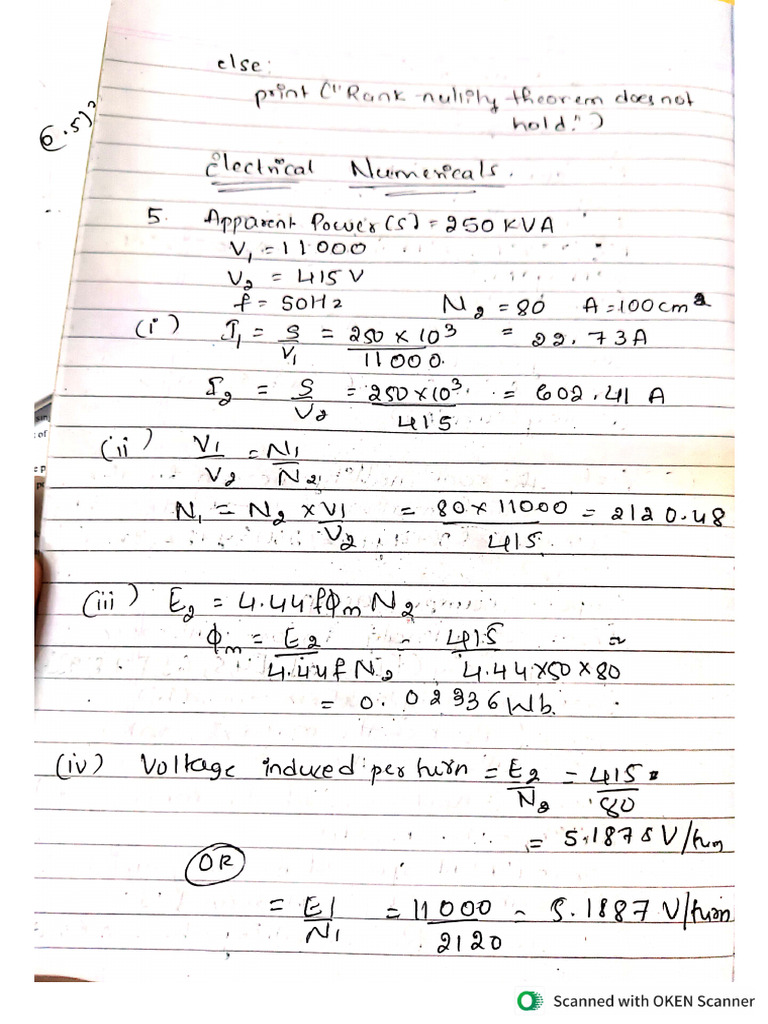 else:
print ("Rank-nullity theorem does not
hold.")
6.5)?
Electrical Numericals.
5. Apparent Power (S) = 250 KVA
V₁ = 11000
V₂ = 415 V
f = 50Hz N₂ = 80 A = 100 cm²
(i) I₁ = S/V₁ = 250 × 10³/11000 = 22.73A
I₂ = S/V₂ = 250 × 10³/415 = 602.41 A
(ii) V₁/V₂ = N₁/N₂
N₁ = N₂ × V₁/V₂ = 80 × 11000/415 = 2120.48
(iii) E₂ = 4.44 f ϕm N₂
ϕm = E₂/4.44 f N₂ = 415/4.44 × 50 × 80 =
= 0.02336 Wb.
(iv) Voltage induced per turn = E₂/N₂ = 415/80
= 5.1875 V/turn
OR
= E₁/N₁ = 11000/2120 = 5.1887 V/turn
Scanned with OKEN Scanner